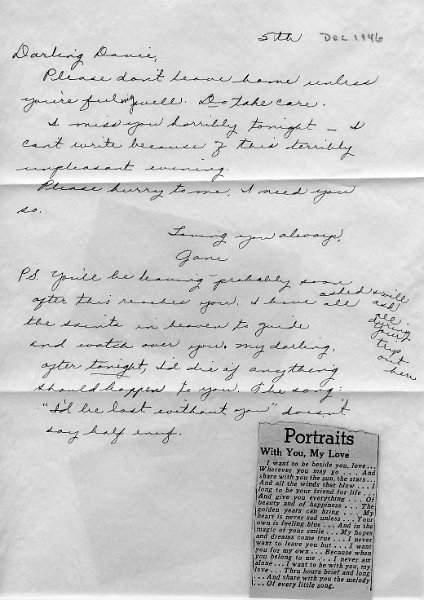 5th Dec 1946
Darling Davie,
Please don't leave home unless
you're feeling well. Do take care.
I miss you horribly tonight — I
can't write because of this terribly
unpleasant evening.
Please hurry to me, I need you
so.
Loving you always,
Jane
P.S. You'll be leaving probably soon
after this reaches you. I have asked & will
all ask all
the saints in heaven to guide
and watch over you my darling.
during your trip out here
after tonight, I'd die if anything
should happen to you. The song:
"I'd be lost without you" doesn't
say half enuf.
Portraits
With You, My Love
I want to be beside you, love ...
Wherever you may go . . . And
share with you the sun, the stars ...
And all the winds that blow . . . I
long to be your friend for life . . .
And give you everything . . . Of
beauty and of happiness . . . The
golden years can bring . . . My
heart is never sad unless . . . Your
own is feeling blue . . . And in the
magic of your smile . . . My hopes
and dreams come true . . . I never
want to leave you but . . . I want
you for my own . . . Because when
you belong to me . . . I never am
alone . . . I want to be with you, my
love . . . Thru hours brief and long
. . . And share with you the melody
. . . Of every little song.